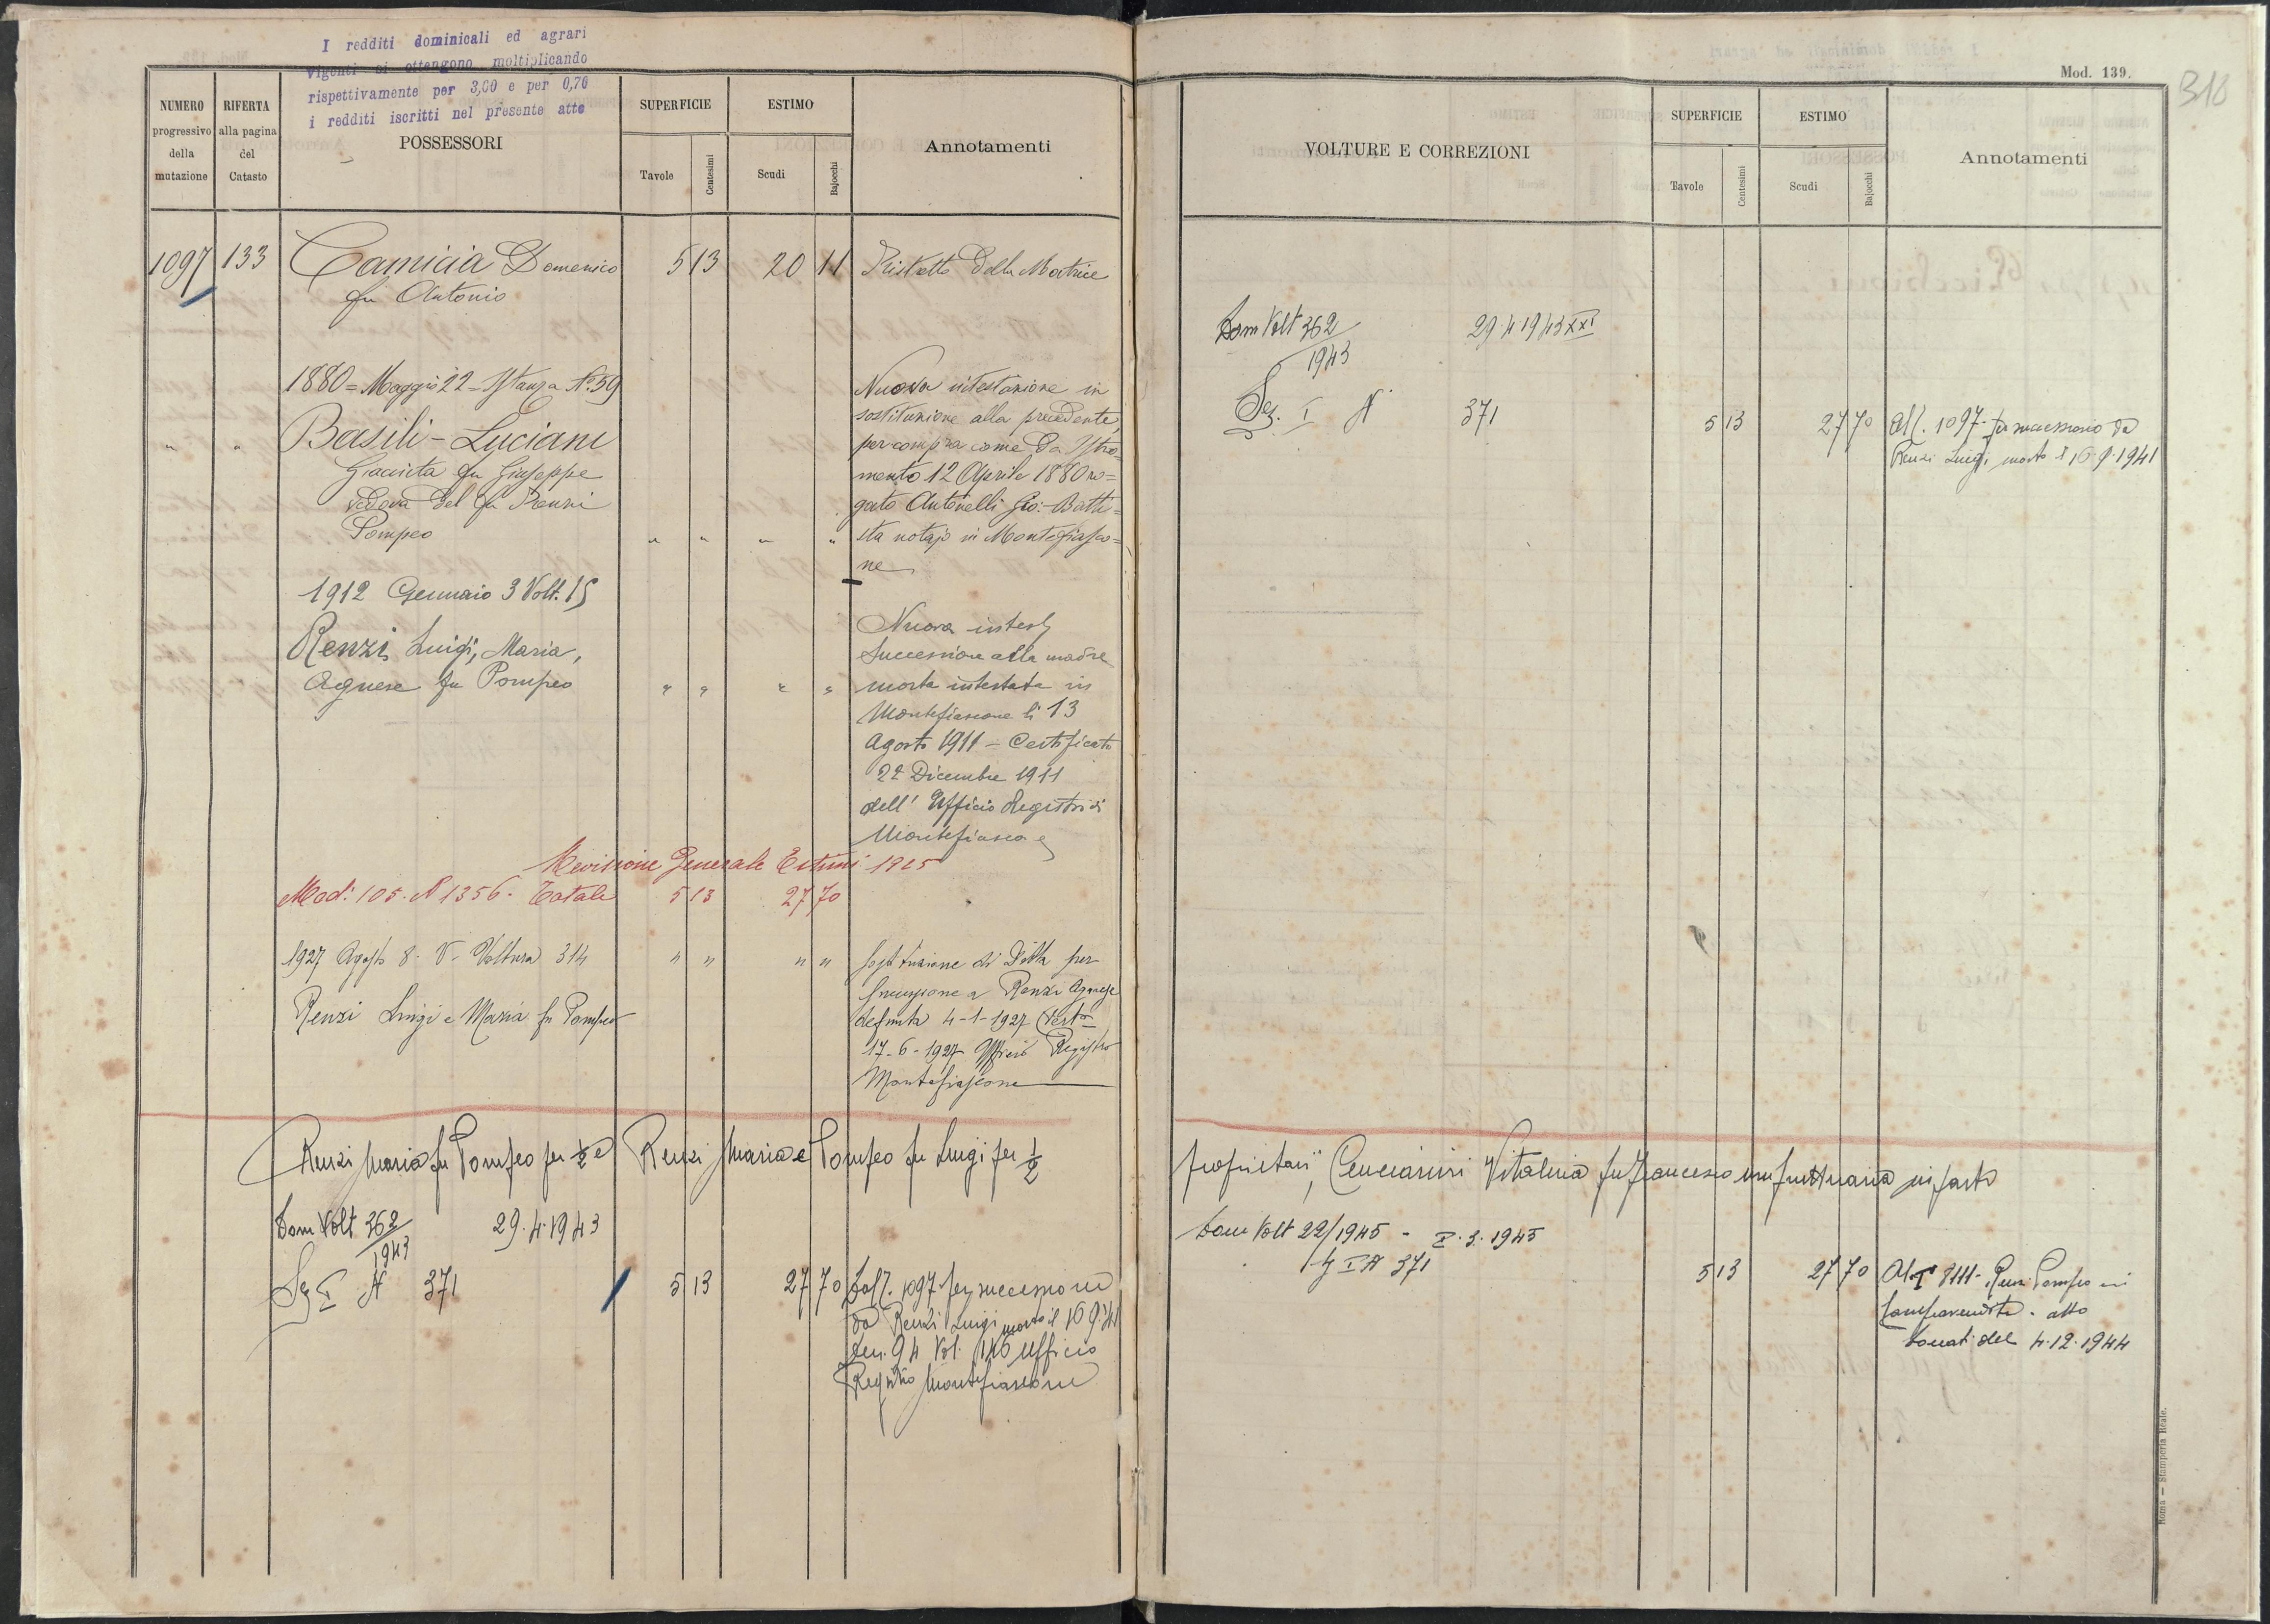 I redditi dominicali ed agrari
vigenti si ottengono moltiplicando
rispettivamente per 3,00 e per 0,70
i redditi iscritti nel presente atto
NUMERO progressivo della mutazione
RIFERTA alla pagina del Catasto
POSSESSORI
SUPERFICIE
Tavole
Centesimi
ESTIMO
Scudi
Bajocchi
Annotamenti
1097 133 Camicia Domenico 5 13 20 11 Ristretto della Matrice
fu Antonio
1880 = Maggio 22 - Istanza N. 59
" " Basili - Luciani
Giacinta fu Giuseppe
vedova del fu Renzi
Pompeo " " " "
Nuova intestazione in
sostituzione alla precedente,
per compra come da Istro=
mento 12 Aprile 1880 ro=
gato Antonelli Gio: Batti=
sta notajo in Montefiasco=
ne
1912 Gennaio 3 Volt. 15
Renzi Luigi, Maria,
Agnese fu Pompeo " " " "
Nuova intest
Successione alla madre
morta intestata in
Montefiascone li 13
Agosto 1911 - Certificato
22 Dicembre 1911
dell' Ufficio Registro di
Montefiascone
Revisione Generale Estimi 1925
Mod: 105. N 1356. Totale 5 13 27 70
1927 Agosto 8. V - Voltura 314 " " " "
Renzi Luigi e Maria fu Pompeo
Sostituzione di Ditta per
Successione a Renzi Agnese
defunta 4-1-1927 Cert.
17-6-1927 Ufficio Registro
Montefiascone
Renzi Maria fu Pompeo per 1/2 e Renzi Maria e Pompeo fu Luigi per 1/2
Dom Volt 362/1943 29.4.1943
Sez I N 371 5 13 27 70
Dall. 1097 per successione
da Renzi Luigi morto il 16 9.41
den. 94 Vol. 146 Ufficio
Registro Montefiascone
Mod. 139.
310
VOLTURE E CORREZIONI
SUPERFICIE
Tavole
Centesimi
ESTIMO
Scudi
Bajocchi
Annotamenti
Dom Volt 362/1943 29 4 1943 XXI
Sez. I N 371 5 13 27 70 All. 1097 - per successione da
Renzi Luigi morto il 16.9.1941
proprietari, Cenciarini Vitalina fu Francesco usufruttuaria in parte
Dom Volt 22/1945 - 3. 1945
Sez I N 371 5 13 27 70
Renzi Pompeo
compravendita. atto
Donati del 4.12.1944
Roma - Stamperia Reale.